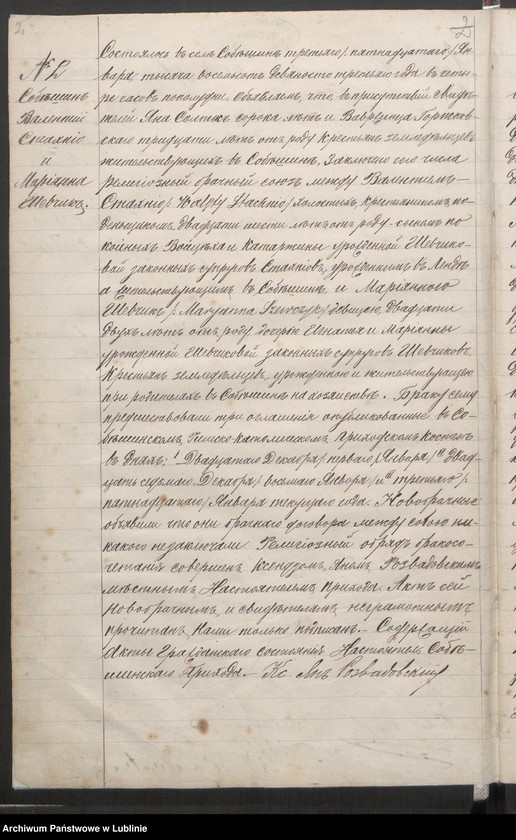 2.
2/2
№ 2
Собѣшинъ
Валентій
Стахніо
и
Маріанна
Шевчикъ.
Состоялось въ селѣ Собѣшинѣ третьяго / пятнадцатаго / Ян-
варя тысяча восемьсотъ девяносто третьяго года въ четы-
ре часовъ пополудни. Объявляемъ, что въ присутствіи свидѣ-
телей Яна Солтыкъ сорока лѣтъ и Вавринца
скаго тридцати лѣтъ отъ роду крестьянъ земледѣльцевъ
жительствующихъ въ Собѣшинѣ, заключено сего числа
религіозный брачный союзъ между Валентіемъ
Стахніо / Walęty Stachnio / холостымъ, крестьяниномъ по-
деньщикомъ двадцати шести лѣтъ отъ роду сыномъ по-
койныхъ Войцѣха и Катаржины урожденной Шевчико-
вой законныхъ супруговъ Стахніовъ, урожденнымъ въ
а жительствующимъ въ Собѣшинѣ и Маріанною
Шевчикъ / Maryanna Szewczyk / дѣвицею двадцати
двухъ лѣтъ отъ роду дочерью Игнатія и Маріанны
урожденной Шевчиковой законныхъ супруговъ Шевчиковъ,
крестьянъ земледѣльцевъ урожденною и жительствующею
при родителяхъ въ Собѣшинѣ на хозяйствѣ. Браку сему
предшествовали три оглашенія опубликованныя въ Со-
бѣшинскомъ Римско-католическомъ приходскомъ костелѣ
въ дняхъ: I двадцатаго Декабря / перваго Января / II двад-
цать седьмаго Декабря / восьмаго Января / и III третьяго /
пятнадцатаго / Января текущаго года. Новобрачные
объявили что они брачнаго договора между собою ни-
какого незаключали. Религіозный обрядъ бракосо-
четанія совершенъ Ксендзомъ Яномъ Розвадовскимъ
мѣстнымъ Настоятелемъ прихода. Актъ сей
новобрачнымъ и свидѣтелямъ неграмотнымъ
прочитанъ, Нами только подписанъ. – Содержащій
Акты Гражданскаго состоянія Настоятель Собѣ-
шинскаго Прихода. – Кс. Янъ Розвадовскій
Archiwum Państwowe w Lublinie